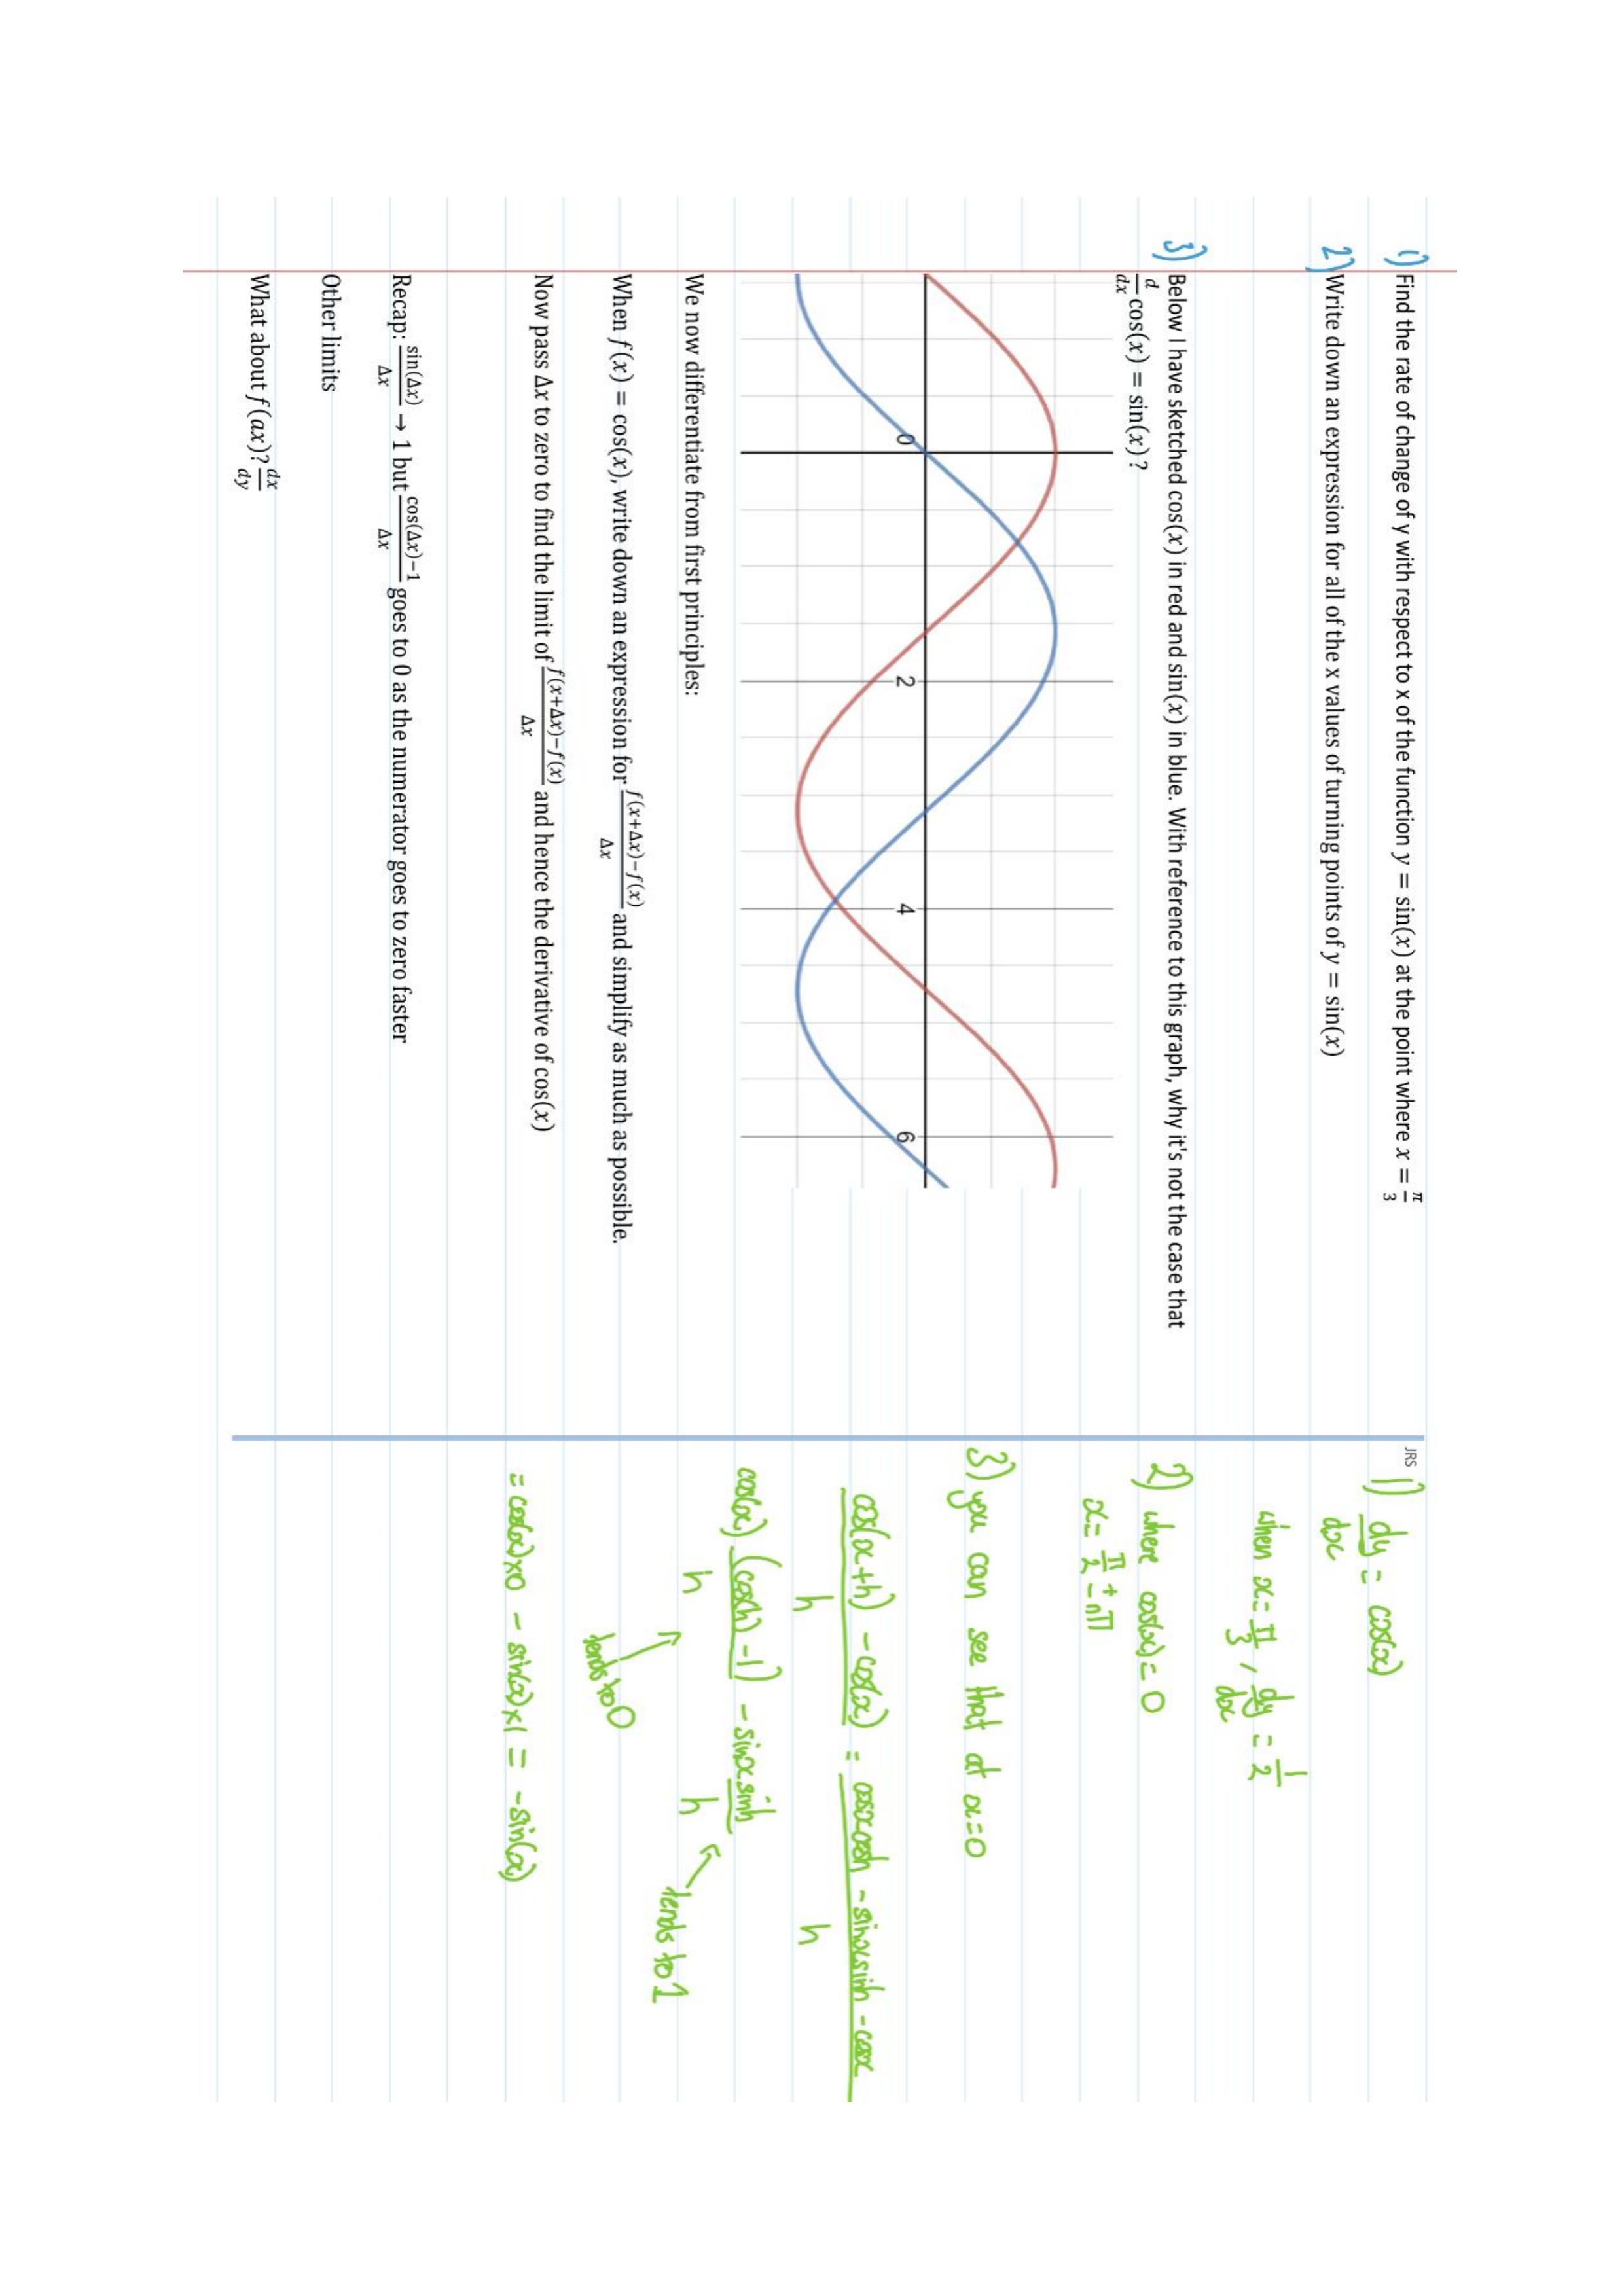 1) Find the rate of change of y with respect to x of the function y = sin(x) at the point where x = π/3
2) Write down an expression for all of the x values of turning points of y = sin(x)
3) Below I have sketched cos(x) in red and sin(x) in blue. With reference to this graph, why it's not the case that
d/dx cos(x) = sin(x)?
0 2 4 6
We now differentiate from first principles:
When f(x) = cos(x), write down an expression for (f(x+Δx)−f(x))/Δx and simplify as much as possible.
Now pass Δx to zero to find the limit of (f(x+Δx)−f(x))/Δx and hence the derivative of cos(x)
Recap: sin(Δx)/Δx → 1 but (cos(Δx)−1)/Δx goes to 0 as the numerator goes to zero faster
Other limits
What about f(ax)? dx/dy
JRS
1) dy/dx = cos(x)
when x = π/3, dy/dx = 1/2
2) where cos(x) = 0
x = π/2 ± nπ
3) you can see that at x=0
(cos(x+h) - cos(x))/h = (cosxcosh - sinxsinh - cosx)/h
cos(x) (cos(h) -1)/h - sinx sinh/h
tends to 0
tends to 1
= cos(x)×0 - sin(x)×1 = -sin(x)